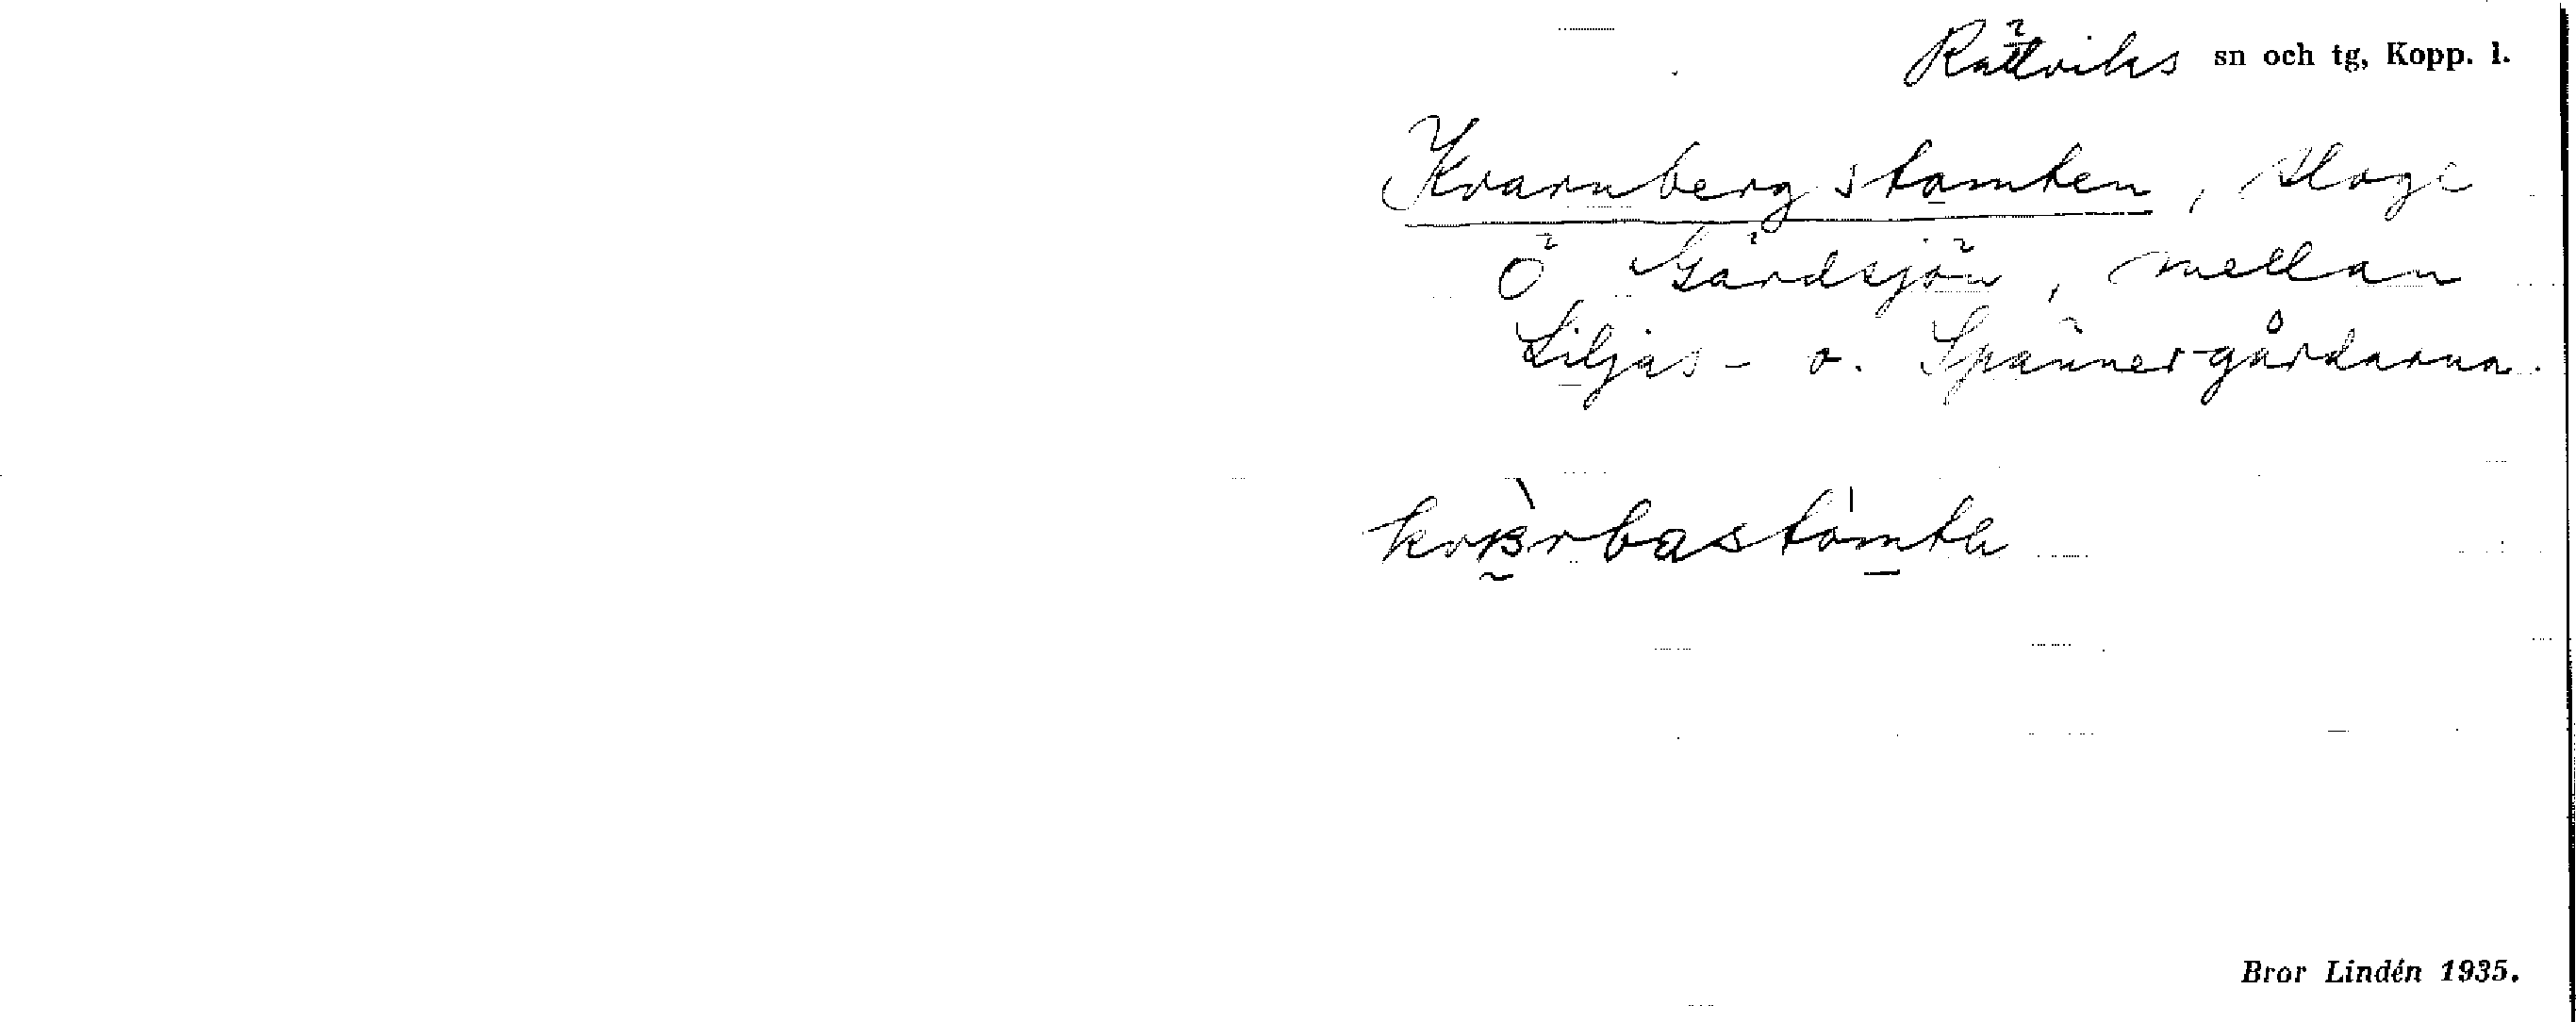 Rättviks sn och tg, Kopp. l.
Kvarnbergstomten, skoge
Ö Gärdsjön, mellan
Liljas- o. Spännergårdarna.
Bror Lindén 1935.